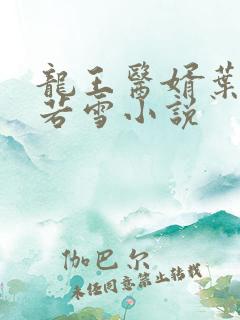 龍王醫婿葉
若雪小説
伽巴尔
未经同意禁止转载